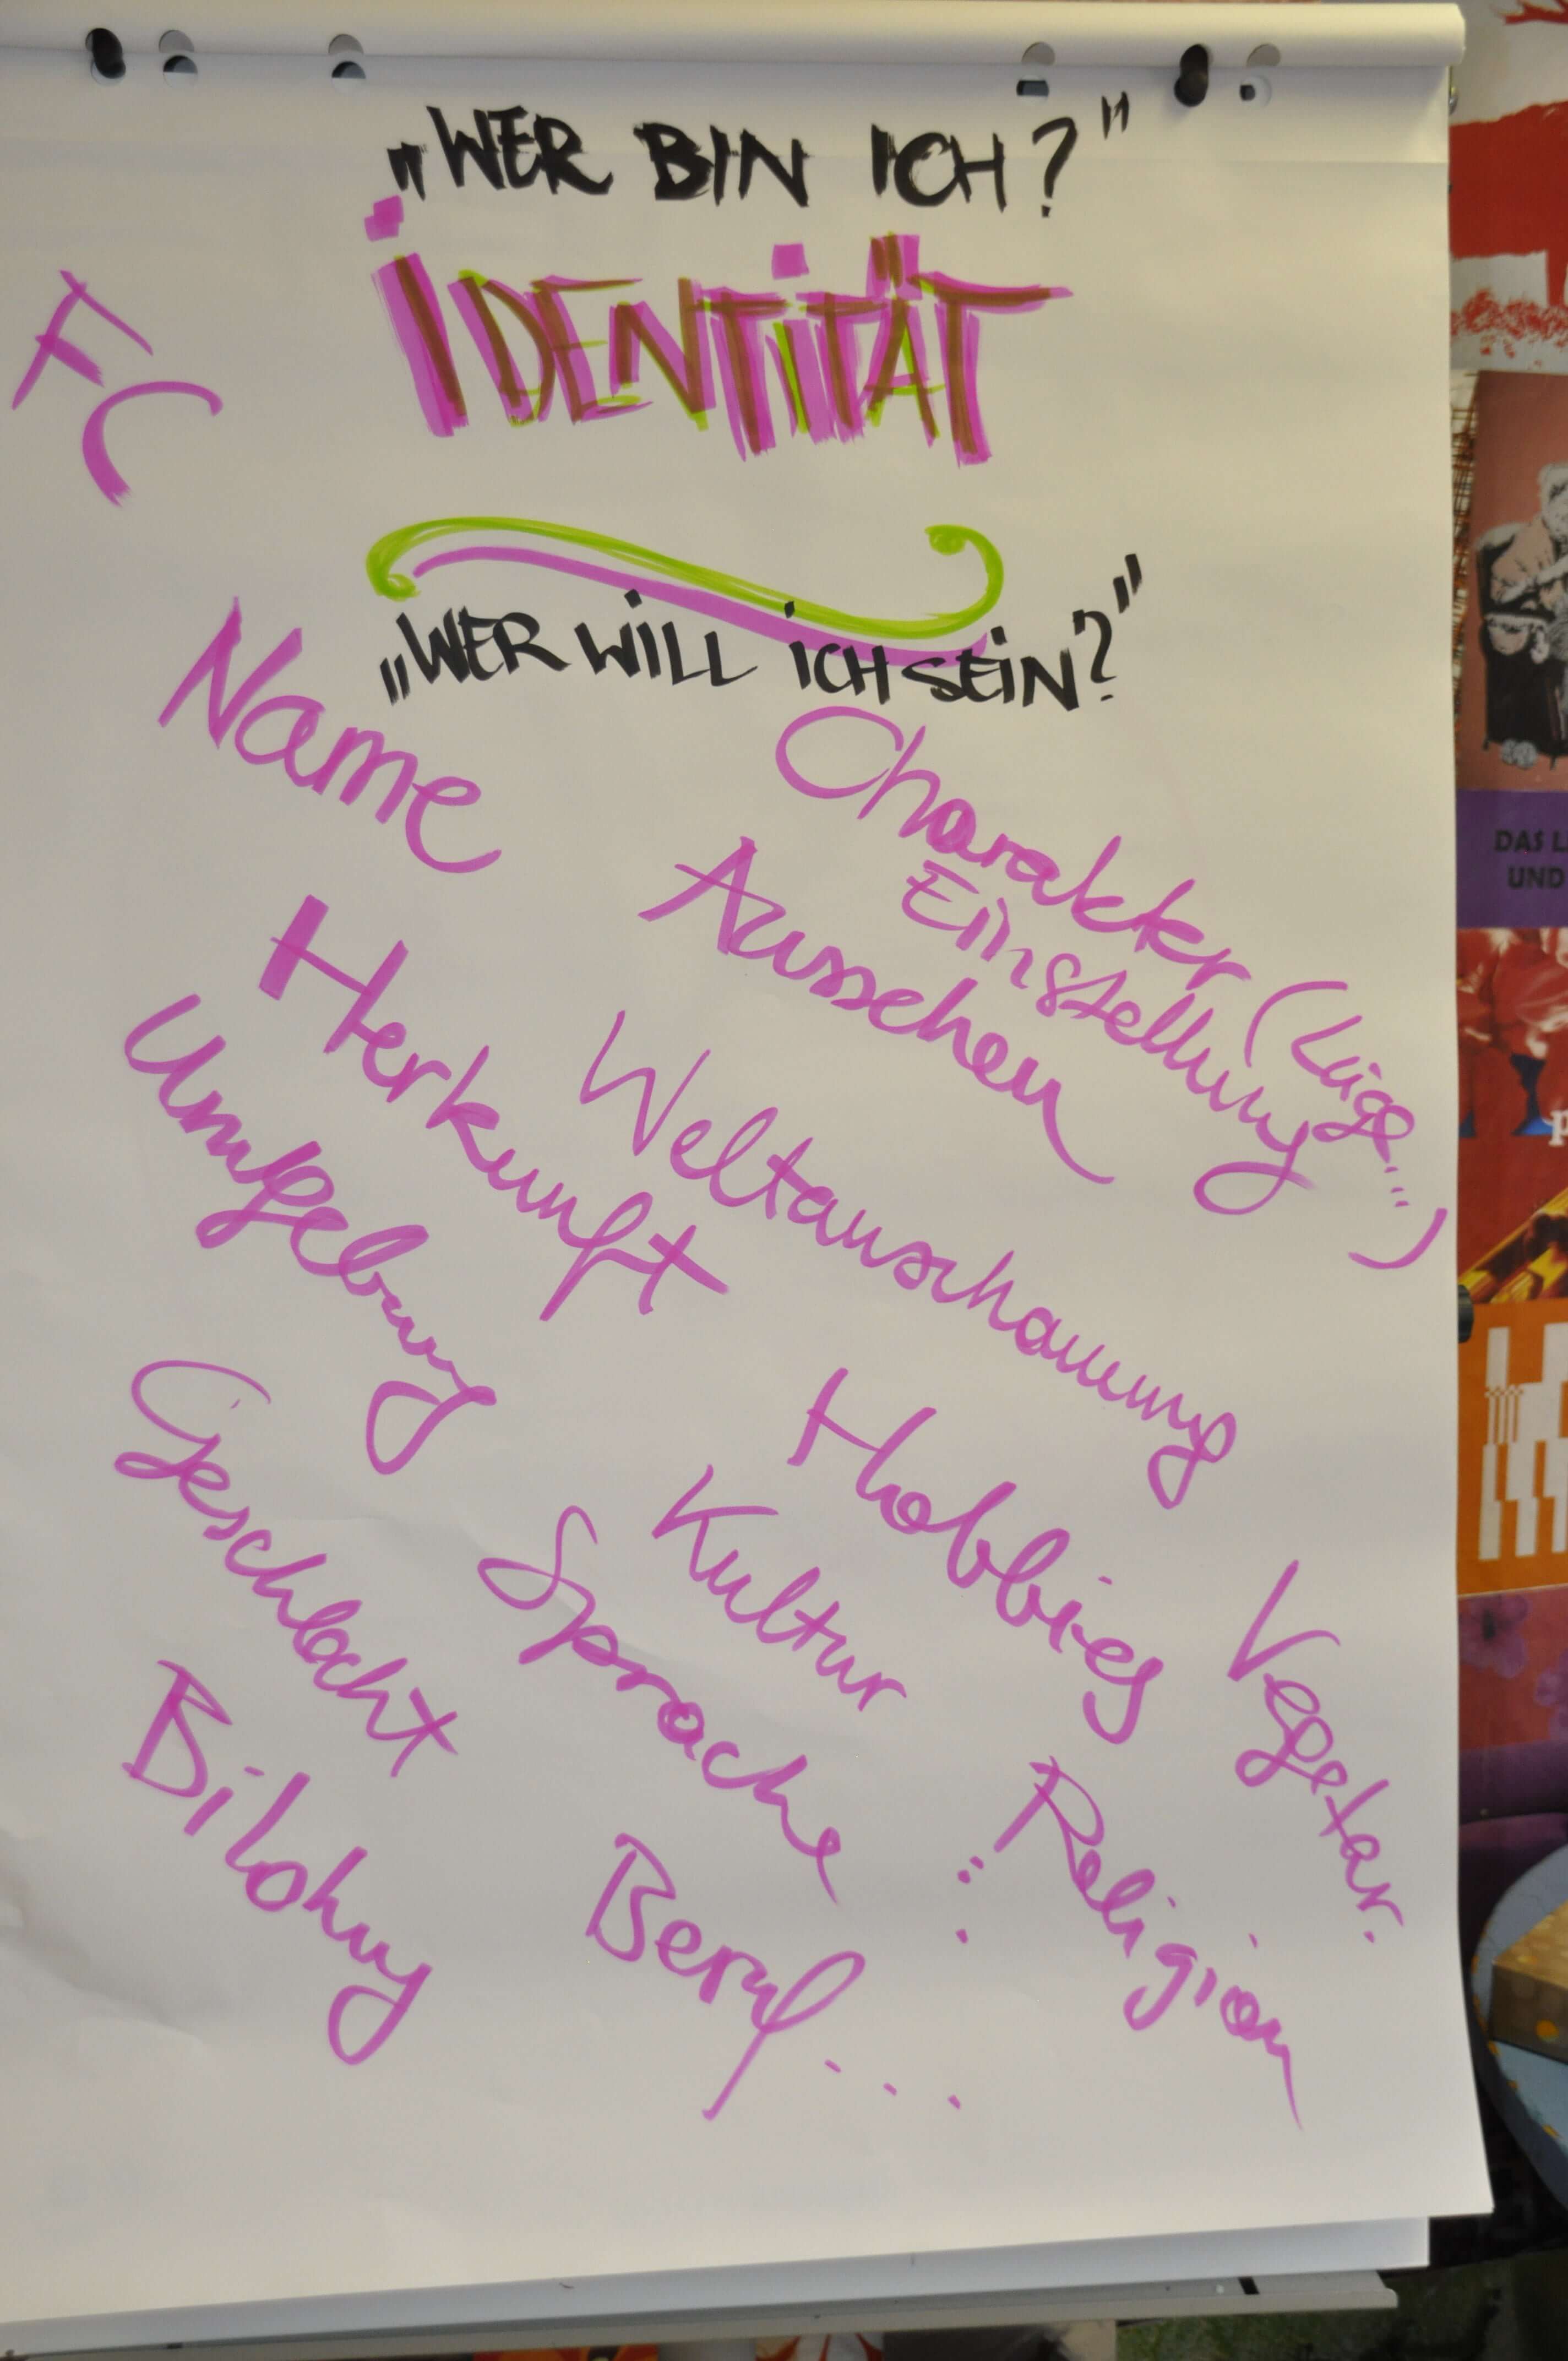 „WER BIN ICH?"
IDENTITÄT
FC
„WER WILL ICH SEIN?"
Name
Charakter (Lüge...)
Einstellung
Aussehen
Herkunft
Weltanschauung
Umgebung
Geschlecht
Hobbies
Kultur
Sprache
Vegetar.
Bildung
Religion
Beruf...
DAS L
UND
P